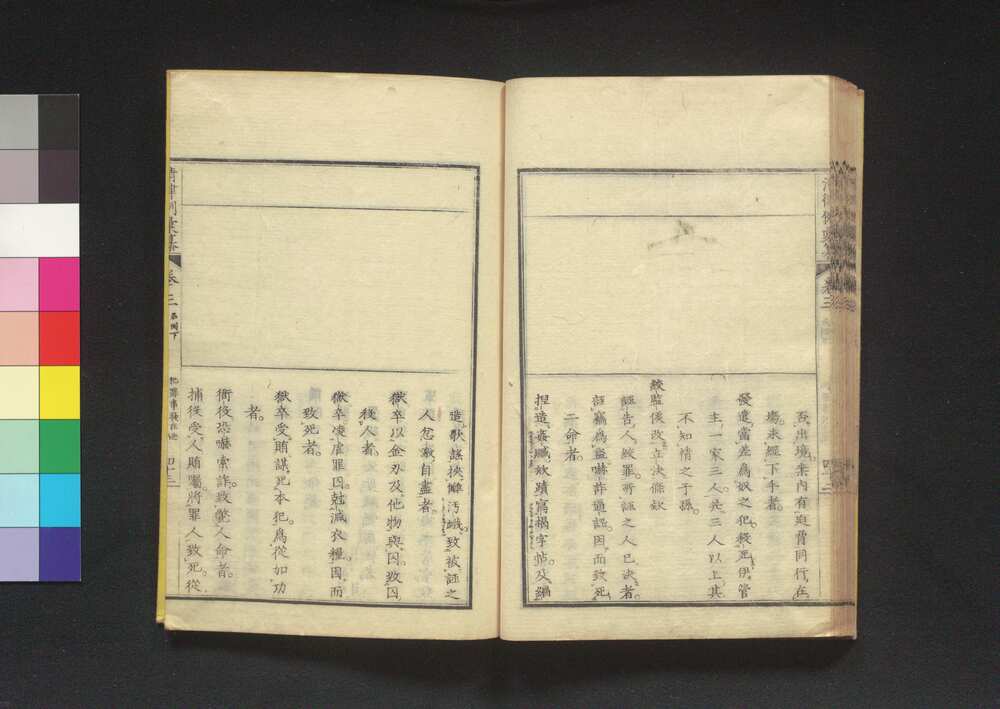 至出境案內有迫脅同行在
塲未經下手者。
優遣當差爲奴之犯殺死伊管
主一家三人非三人以上其
不知情之子孫。
絞監後改立決條欵
誣告人絞罪所誣之人已決者。
誣竊爲盜嚇詐逼認因而致死
二命者。
捏造姦贓欵蹟寫揭字帖及編
造歌謠挾讐汚衊致被誣之
人忿激自盡者。
獄卒以金刃及他物與囚致囚
殺人者。
獄卒凌虐罪囚尅減衣糧因而
致死者。
獄卒受賄謀死本犯爲從加功
者。
衙役恐嚇索詐致斃人命者。
捕役受人賄囑將罪人致死從
卷三
四十三